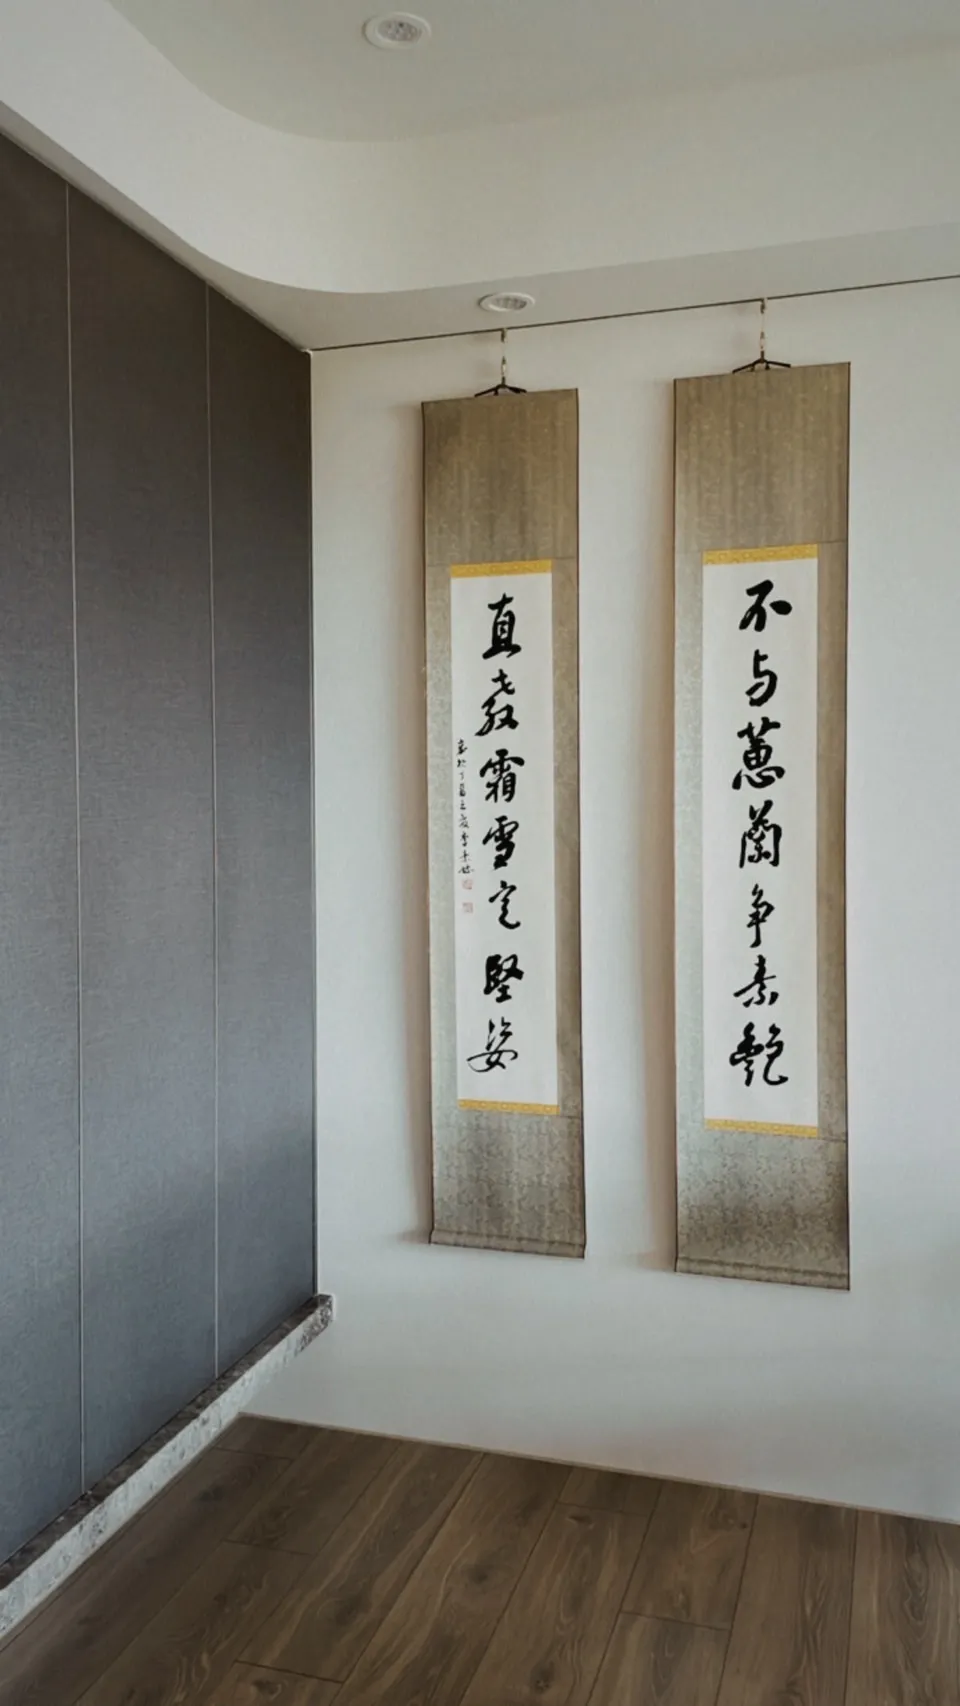 不与蕙蘭争素艷
直教霜雪定堅姿